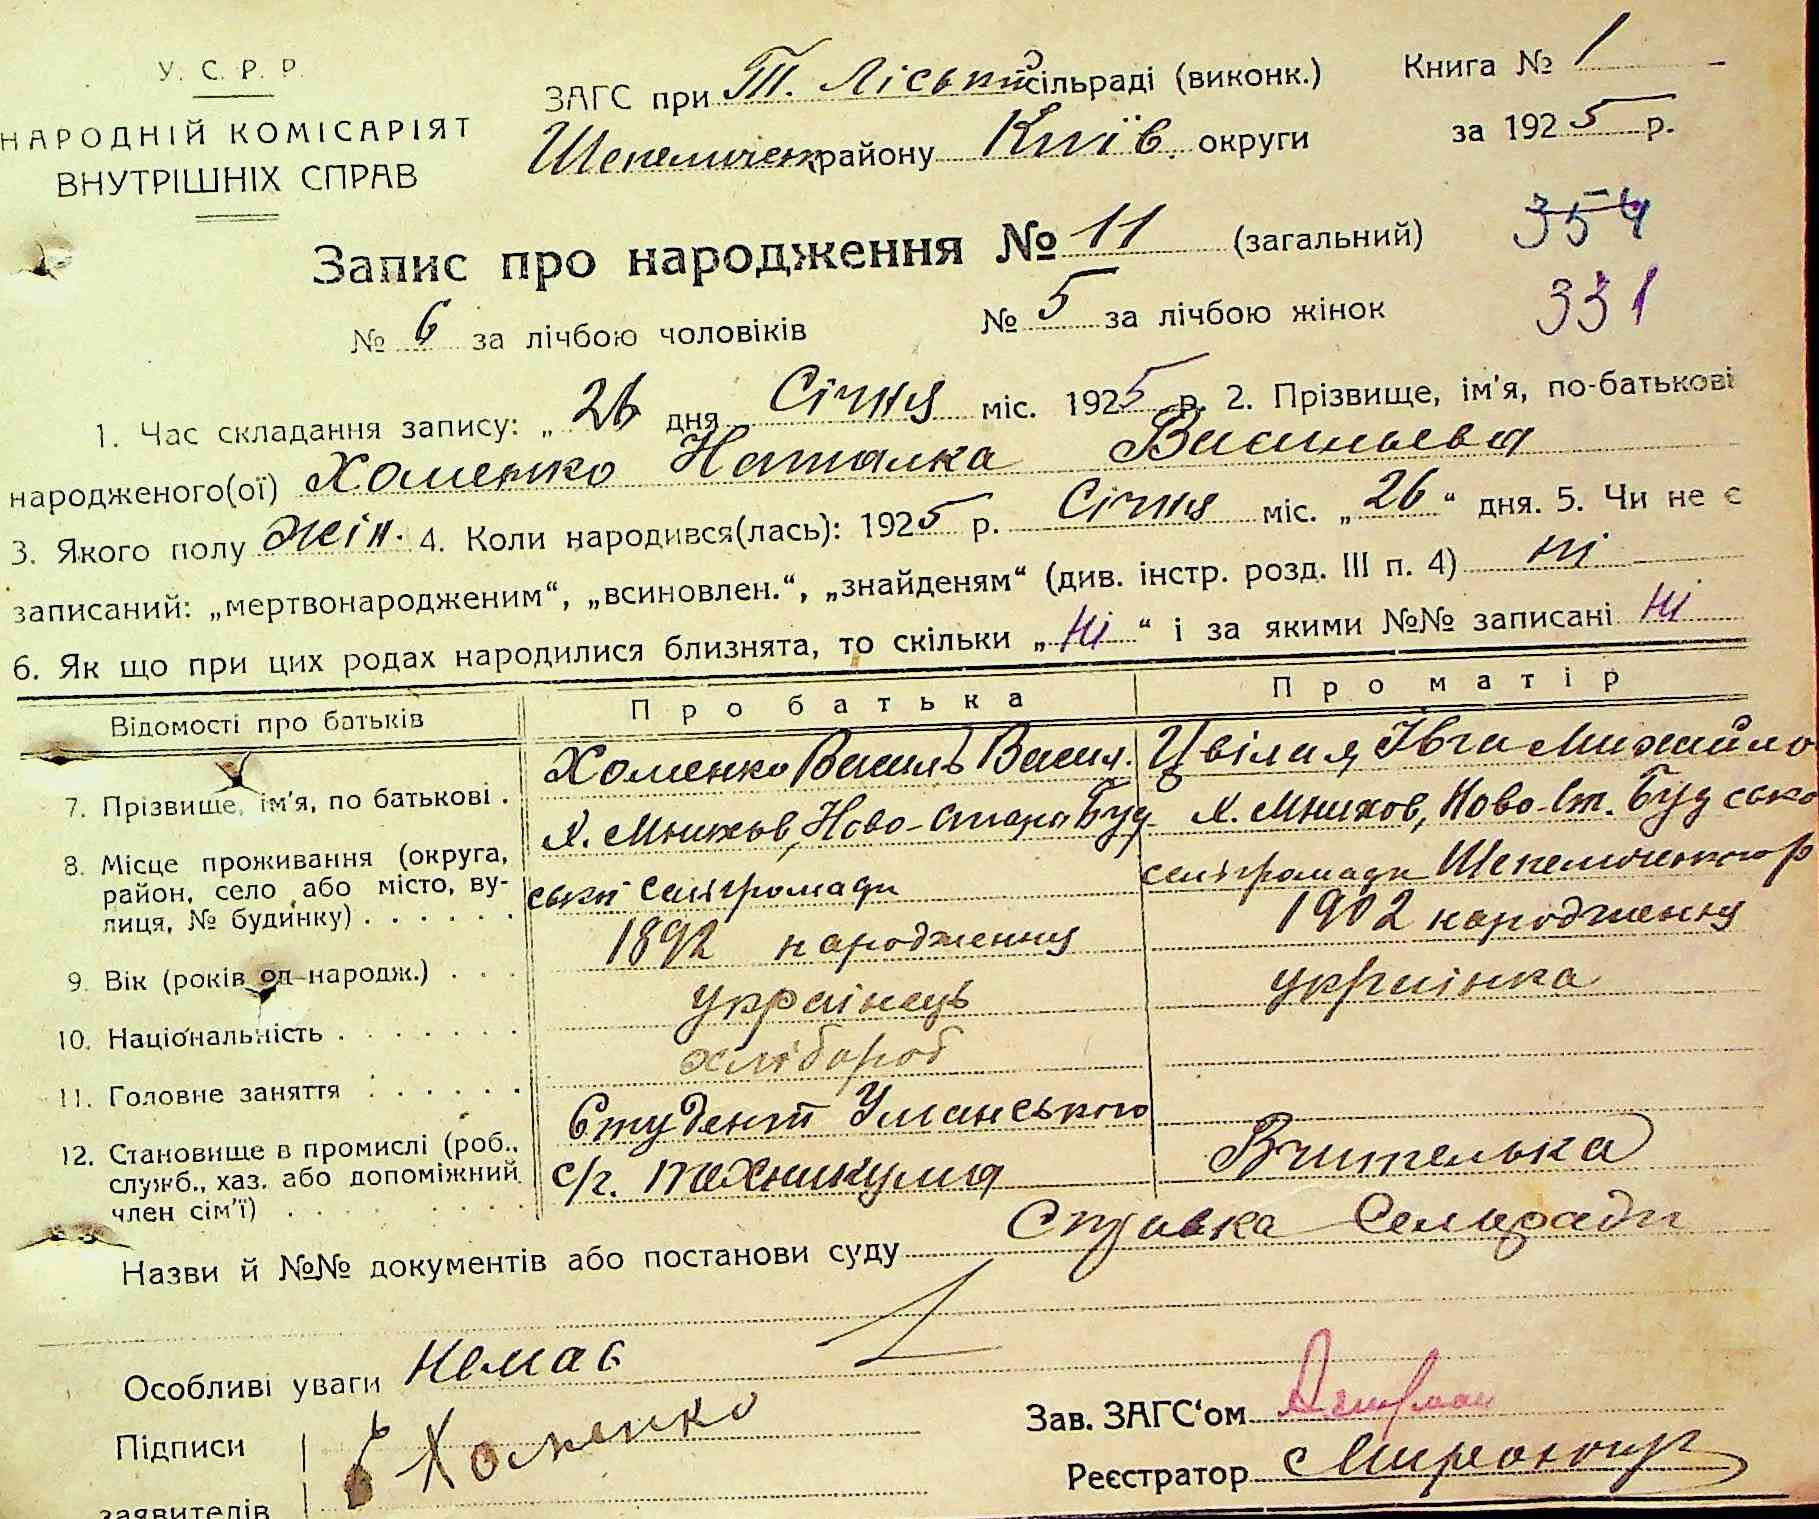 У. С. Р. Р.
НАРОДНІЙ КОМІСАРІЯТ
ВНУТРІШНІХ СПРАВ
ЗАГС при Т. Ліській сільраді (виконк.)
Шепелицьк району Київ. округи
Книга № 1
за 1925 р.
Запис про народження № 11 (загальний)
354
№ 6 за лічбою чоловіків № 5 за лічбою жінок
331
1. Час складання запису: „ 26 дня Січня міс. 1925 р. 2. Прізвище, ім'я, по-батькові
народженого(ої) Хоменко Наталка Васильева
3. Якого полу жін. 4. Коли народився(лась): 1925 р. Січня міс. „26“ дня. 5. Чи не є
записаний: „мертвонародженим“, „всиновлен.“, „знайденям“ (див. інстр. розд. III п. 4) ні
6. Як що при цих родах народилися близнята, то скільки „ні“ і за якими №№ записані ні
Відомості про батьків Про батька Про матір
7. Прізвище, ім'я, по батькові . Хоменко Василь Васил. Цвілая Ївга Михайло
8. Місце проживання (округа, район, село або місто, вулиця, № будинку) . . . . . .
Х. Мнихов, Ново-Стара Буд
ської сельгромади
Х. Мнихов, Ново-Ст. Будсько
сельгромади
9. Вік (років од народж.) . . . 1892 народження 1902 народження
10. Національність . . . . . . . українець українка
11. Головне заняття . . . . . . хлібороб
12. Становище в промислі (роб., служб., хаз. або допоміжний член сім'ї) . . . . . . . .
Студент Уманського
с/г. технікума
Вчителька
Назви й №№ документів або постанови суду Справка Сельради
Особливі уваги Немає
Підписи
заявителів
Хоменко
Зав. ЗАГС'ом
Реєстратор